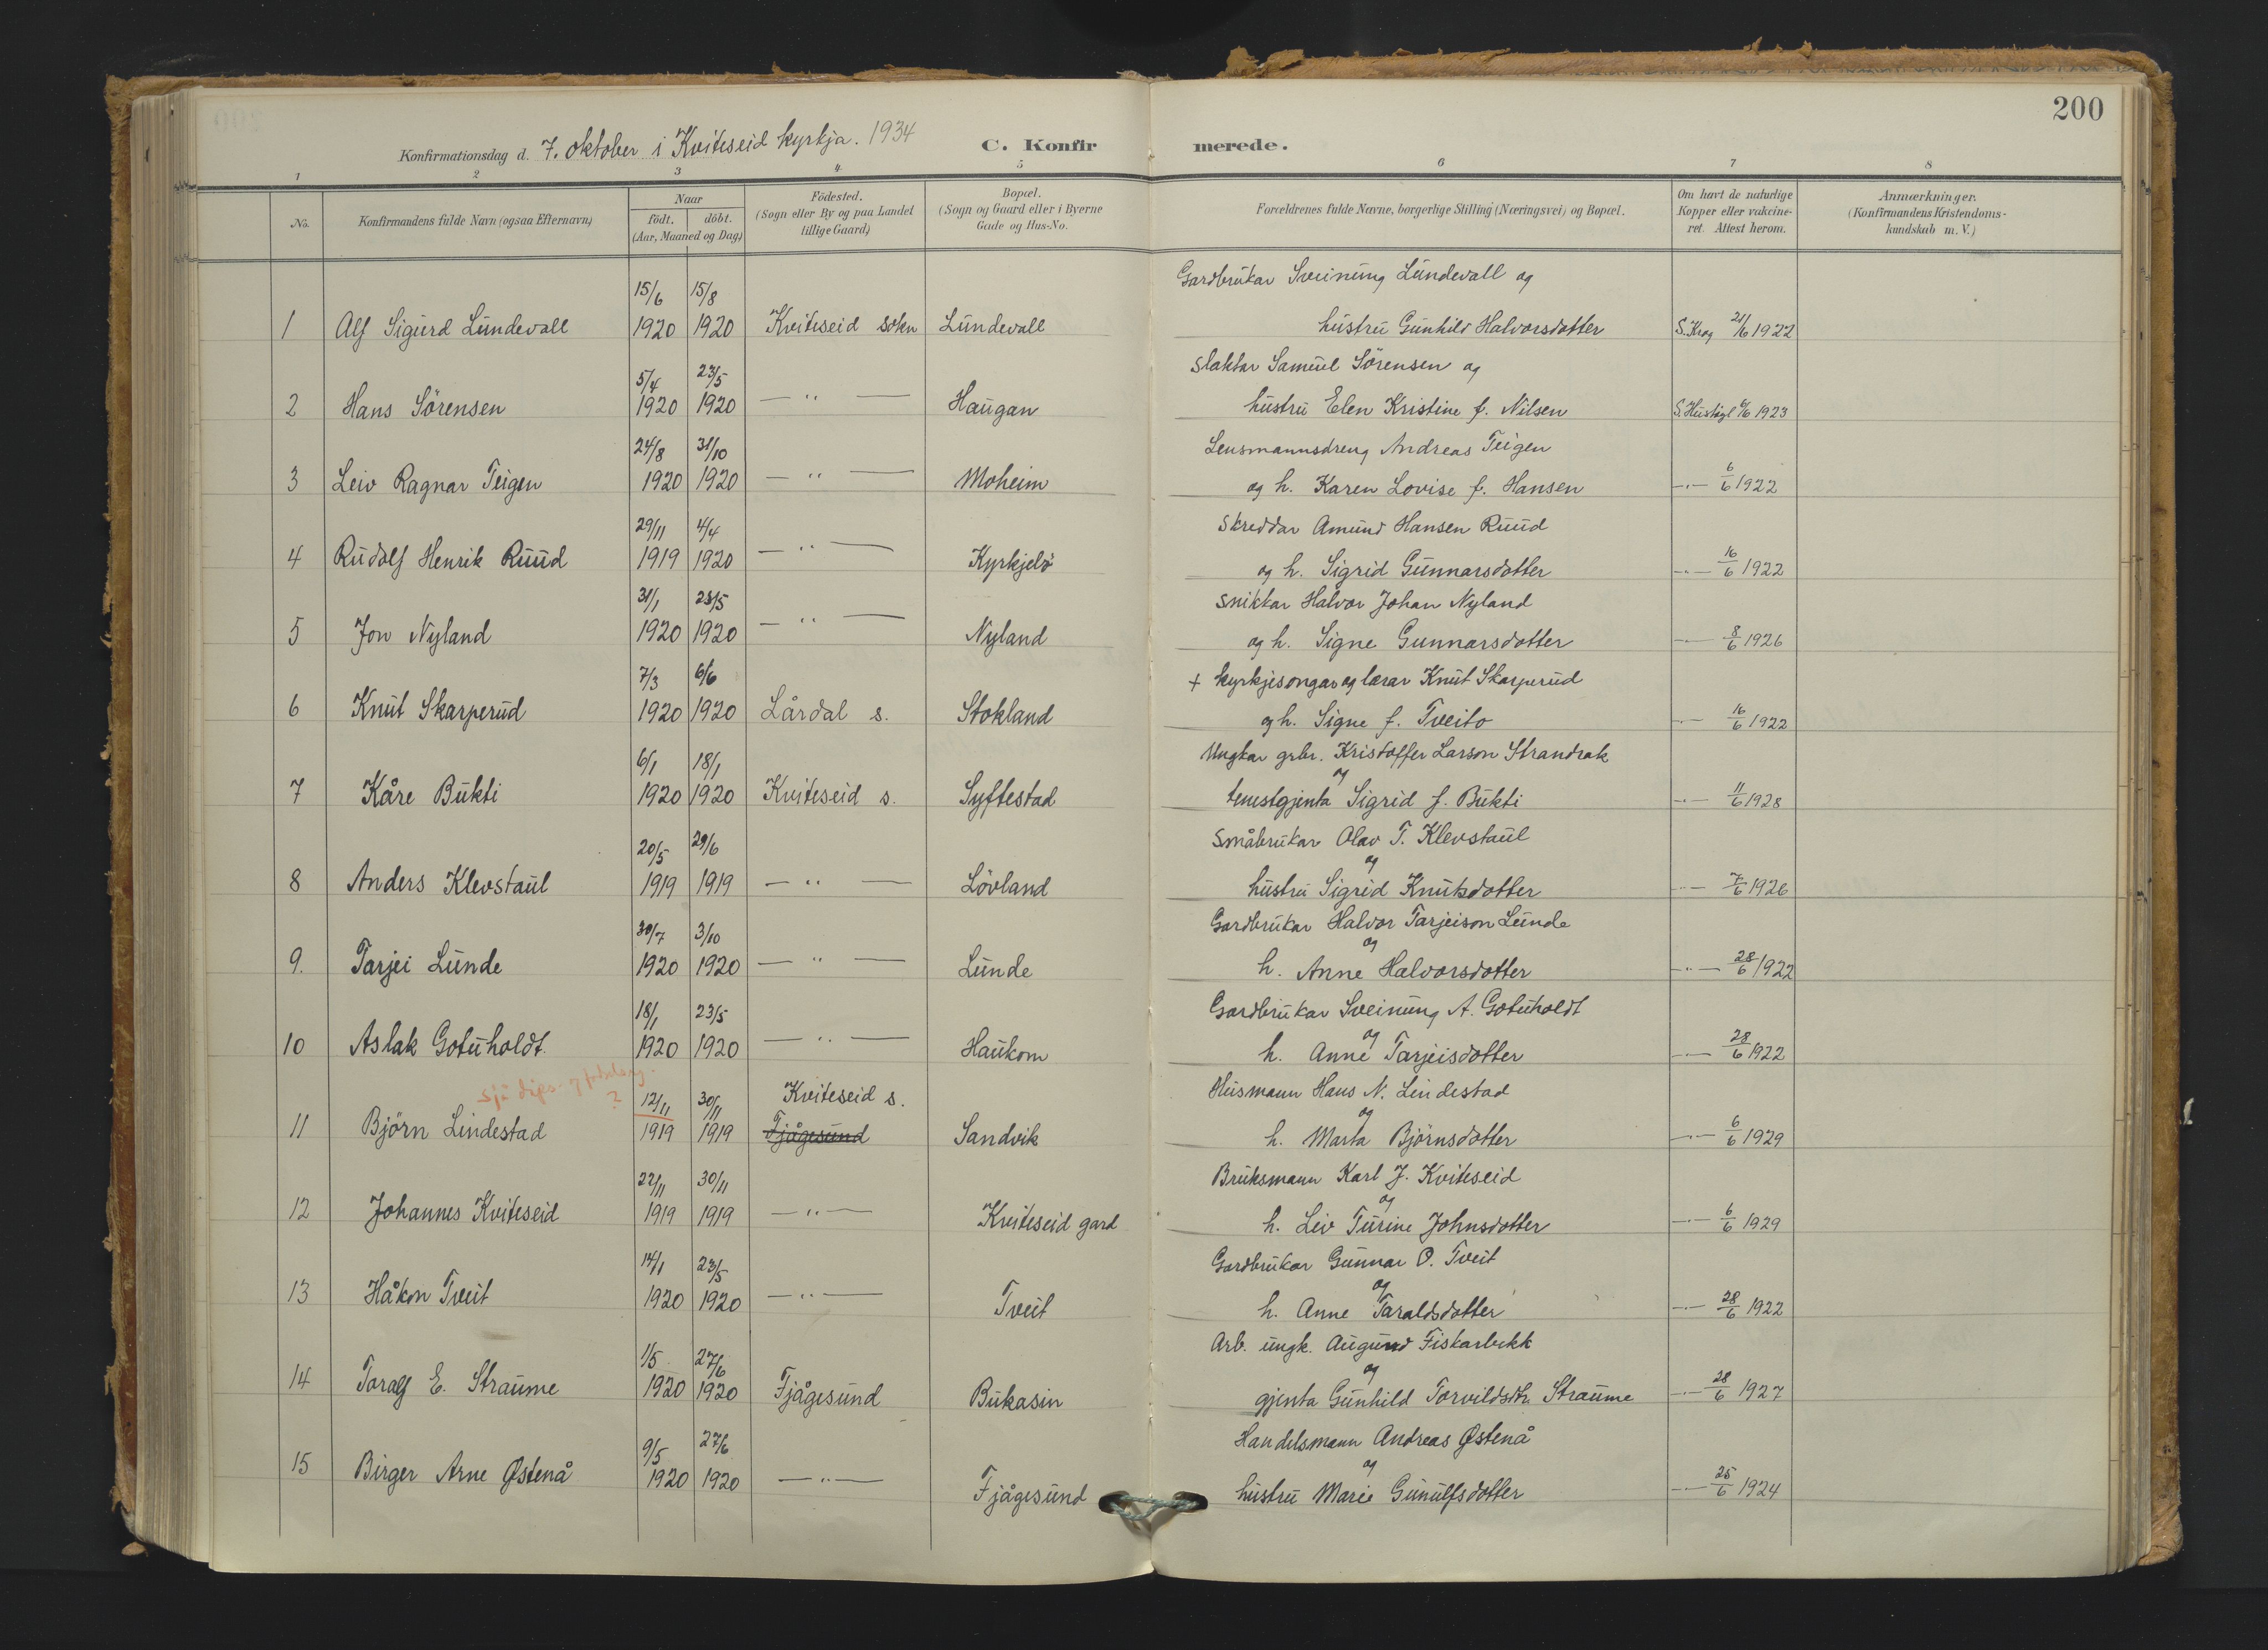 200
Konfirmationsdag d. 7. oktober i Kviteseid kyrkja. 1934
C. Konfirmerede.
1 2 3 4 5 6 7 8
No.
Konfirmandens fulde Navn (ogsaa Efternavn)
Naar
födt. döbt.
(Aar, Maaned og Dag)
Födested.
(Sogn eller By og paa Landet
tillige Gaard)
Bopæl.
(Sogn og Gaard eller i Byerne
Gade og Hus-No.
Forældrenes fulde Navne, borgerlige Stilling (Næringsvei) og Bopæl.
Om havt de naturlige
Kopper eller vakcine-
ret. Attest herom.
Anmærkninger.
(Konfirmandens Kristendoms-
kundskab m. V.)
15/6 15/8 Gardbrukar Sveinung Lundevall og
1 Alf Sigurd Lundevall 1920 1920 Kviteseid sokn Lundevall hustru Gunhild Halvorsdotter S. Krog 21/6 1922
5/4 23/5 Slaktar Samuel Sörensen og
2 Hans Sörensen 1920 1920 — " — Haugan hustru Elen Kristine f. Nilsen 6/6 1923
24/8 31/10 Lensmannsdreng Andreas Teigen
3 Leiv Ragnar Teigen 1920 1920 — " — Moheim og h. Karen Lovise f. Hansen — " — 6/6 1922
29/11 4/4 Skreddar Amund Hansen Ruud
4 Rudolf Henrik Ruud 1919 1920 — " — Kyrkjebö og h. Sigrid Gunnarsdotter — " — 16/6 1922
31/1 23/5 Snikkar Halvor Johan Nyland
5 Jon Nyland 1920 1920 — " — Nyland og h. Signe Gunnarsdotter — " — 8/6 1926
7/3 6/6 + kyrkjesongar og lærar Knut Skarperud
6 Knut Skarperud 1920 1920 Lårdal s. Stokland og h. Signe f. Tveito — " — 16/6 1922
6/1 18/1 Ungkar grbr. Kristoffer Larson Strandrak
og
7 Kåre Bukti 1920 1920 Kviteseid s. Syftestad tenestgjenta Sigrid f. Bukti — " — 11/6 1928
20/5 29/6 Småbrukar Olav T. Klevstaul
og
8 Anders Klevstaul 1919 1919 — " — Lövland hustru Sigrid Knutsdotter — " — 7/6 1926
30/7 3/10 Gardbrukar Halvor Tarjeison Lunde
og
9. Tarjei Lunde 1920 1920 — " — Lunde h. Anne Halvorsdotter — " — 28/6 1922
18/1 23/5 Gardbrukar Sveinung A. Gotuholdt
og
10 Aslak Gotuholdt. 1920 1920 — " — Haukom h. Anne Tarjeisdotter — " — 28/6 1922
sjå ? 12/11 30/11 Kviteseid s. Husmann Hans N. Lindestad
og
11 Björn Lindestad 1919 1919 Fjågesund Sandvik h. Marta Björnsdotter — " — 6/6 1929
22/11 30/11 Bruksmann Karl J. Kviteseid
og
12 Johannes Kviteseid 1919 1919 — " — Kviteseid gard h. Liv Turine Johnsdotter — " — 6/6 1929
14/1 23/5 Gardbrukar Gunnar O. Tveit
og
13 Håkon Tveit 1920 1920 — " — Tveit h. Anne Taraldsdotter — " — 28/6 1922
1/5 27/6 Arb. ungk. Augund Fiskarbekk
og
14 Toralf E. Straume 1920 1920 Fjågesund Bukasin gjenta Gunhild Torvildsdtr. Straume — " — 28/6 1927
9/5 27/6 Handelsmann Andreas Østenå
og
15 Birger Arne Østenå 1920 1920 — " — Fjågesund hustru Marie Gunulfsdotter — " — 25/6 1924